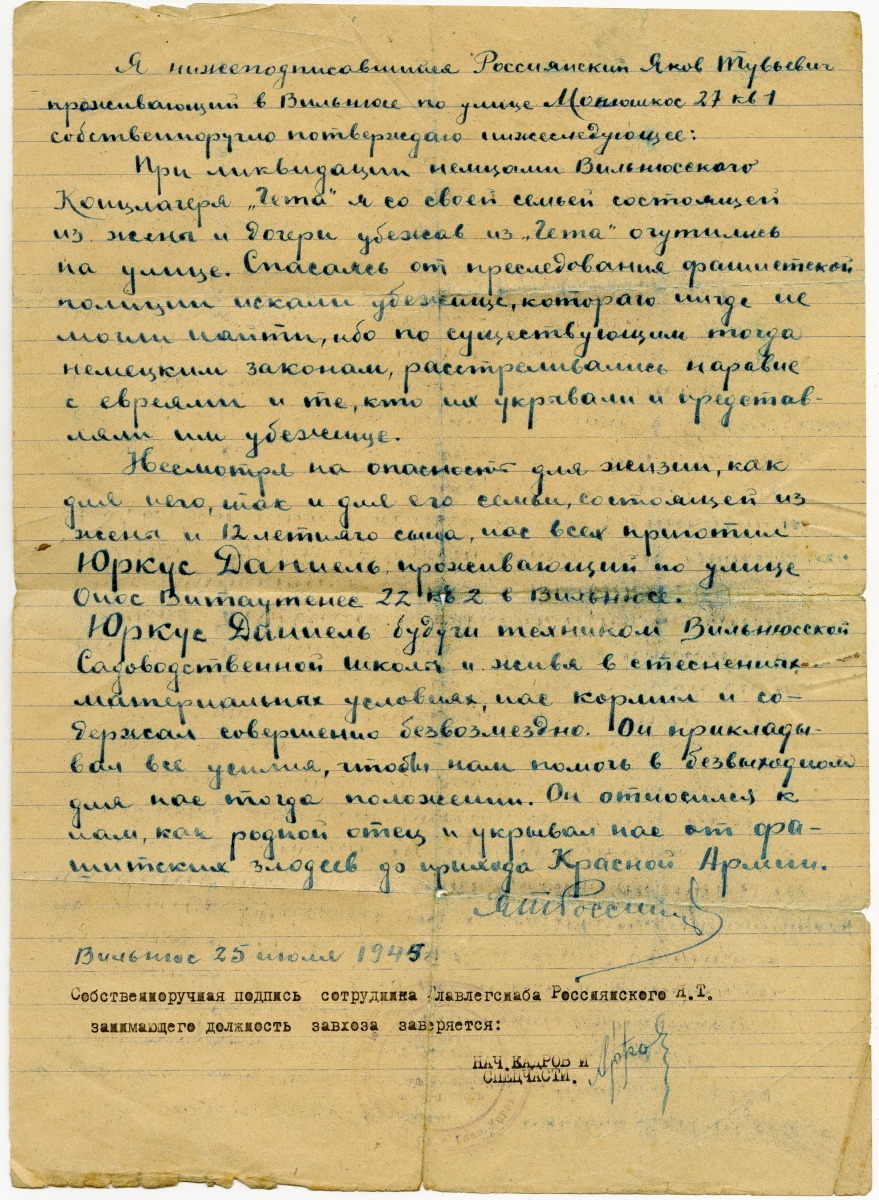 Я нижеподписавшийся Россиянский Яков Тувьевич
проживающий в Вильнюсе по улице Монюшкос 27 кв 1
собственноручно потверждаю нижеследующее:
При ликвидации немцами Вильнюсского
Концлагеря „Гета" я со своей семьей состоящей
из жены и дочери убежав из „Гета" очутились
на улице. Спасаясь от преследования фашистской
полиции искали убежище, котораго нигде не
могли найти, ибо по существующим тогда
немецким законам, расстреливались наравне
с евреями и те, кто их укрывали и представ-
ляли им убежище.
Несмотря на опасность для жизни, как
для него, так и для его семьи, состоящей из
жены и 12 летняго сына, нас всех приютил
Юркус Даниель, проживающий по улице
Онос Витаутенес 22 кв 2 в Вильнюсе.
Юркус Даниель будучи техником Вильнюсской
Садоводственной школы и живя в стесненных
материальных условиях, нас кормил и со-
держал совершенно безвозмездно. Он приклады-
вал все усилия, чтобы нам помочь в безвыходном
для нас тогда положении. Он относился к
нам, как родной отец и укрывал нас от фа-
шитских злодеев до прихода Красной Армии.
Вильнюс 25 июля 1945 г
Собственноручная подпись сотрудника Главлегснаба Россиянского Я.Т.
занимающего должность завхоза заверяется:
НАЧ. КАДРОВ И
СПЕЦЧАСТИ.